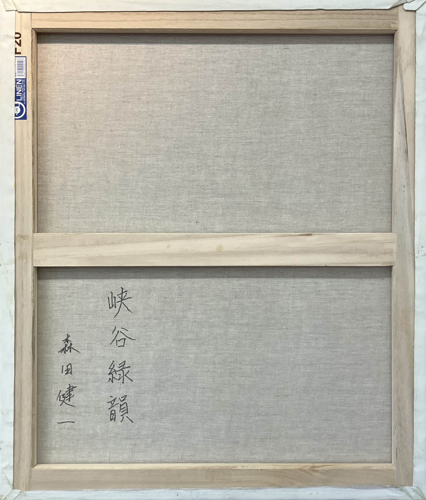 F20
LINEN
峡谷緑韻
森田健一